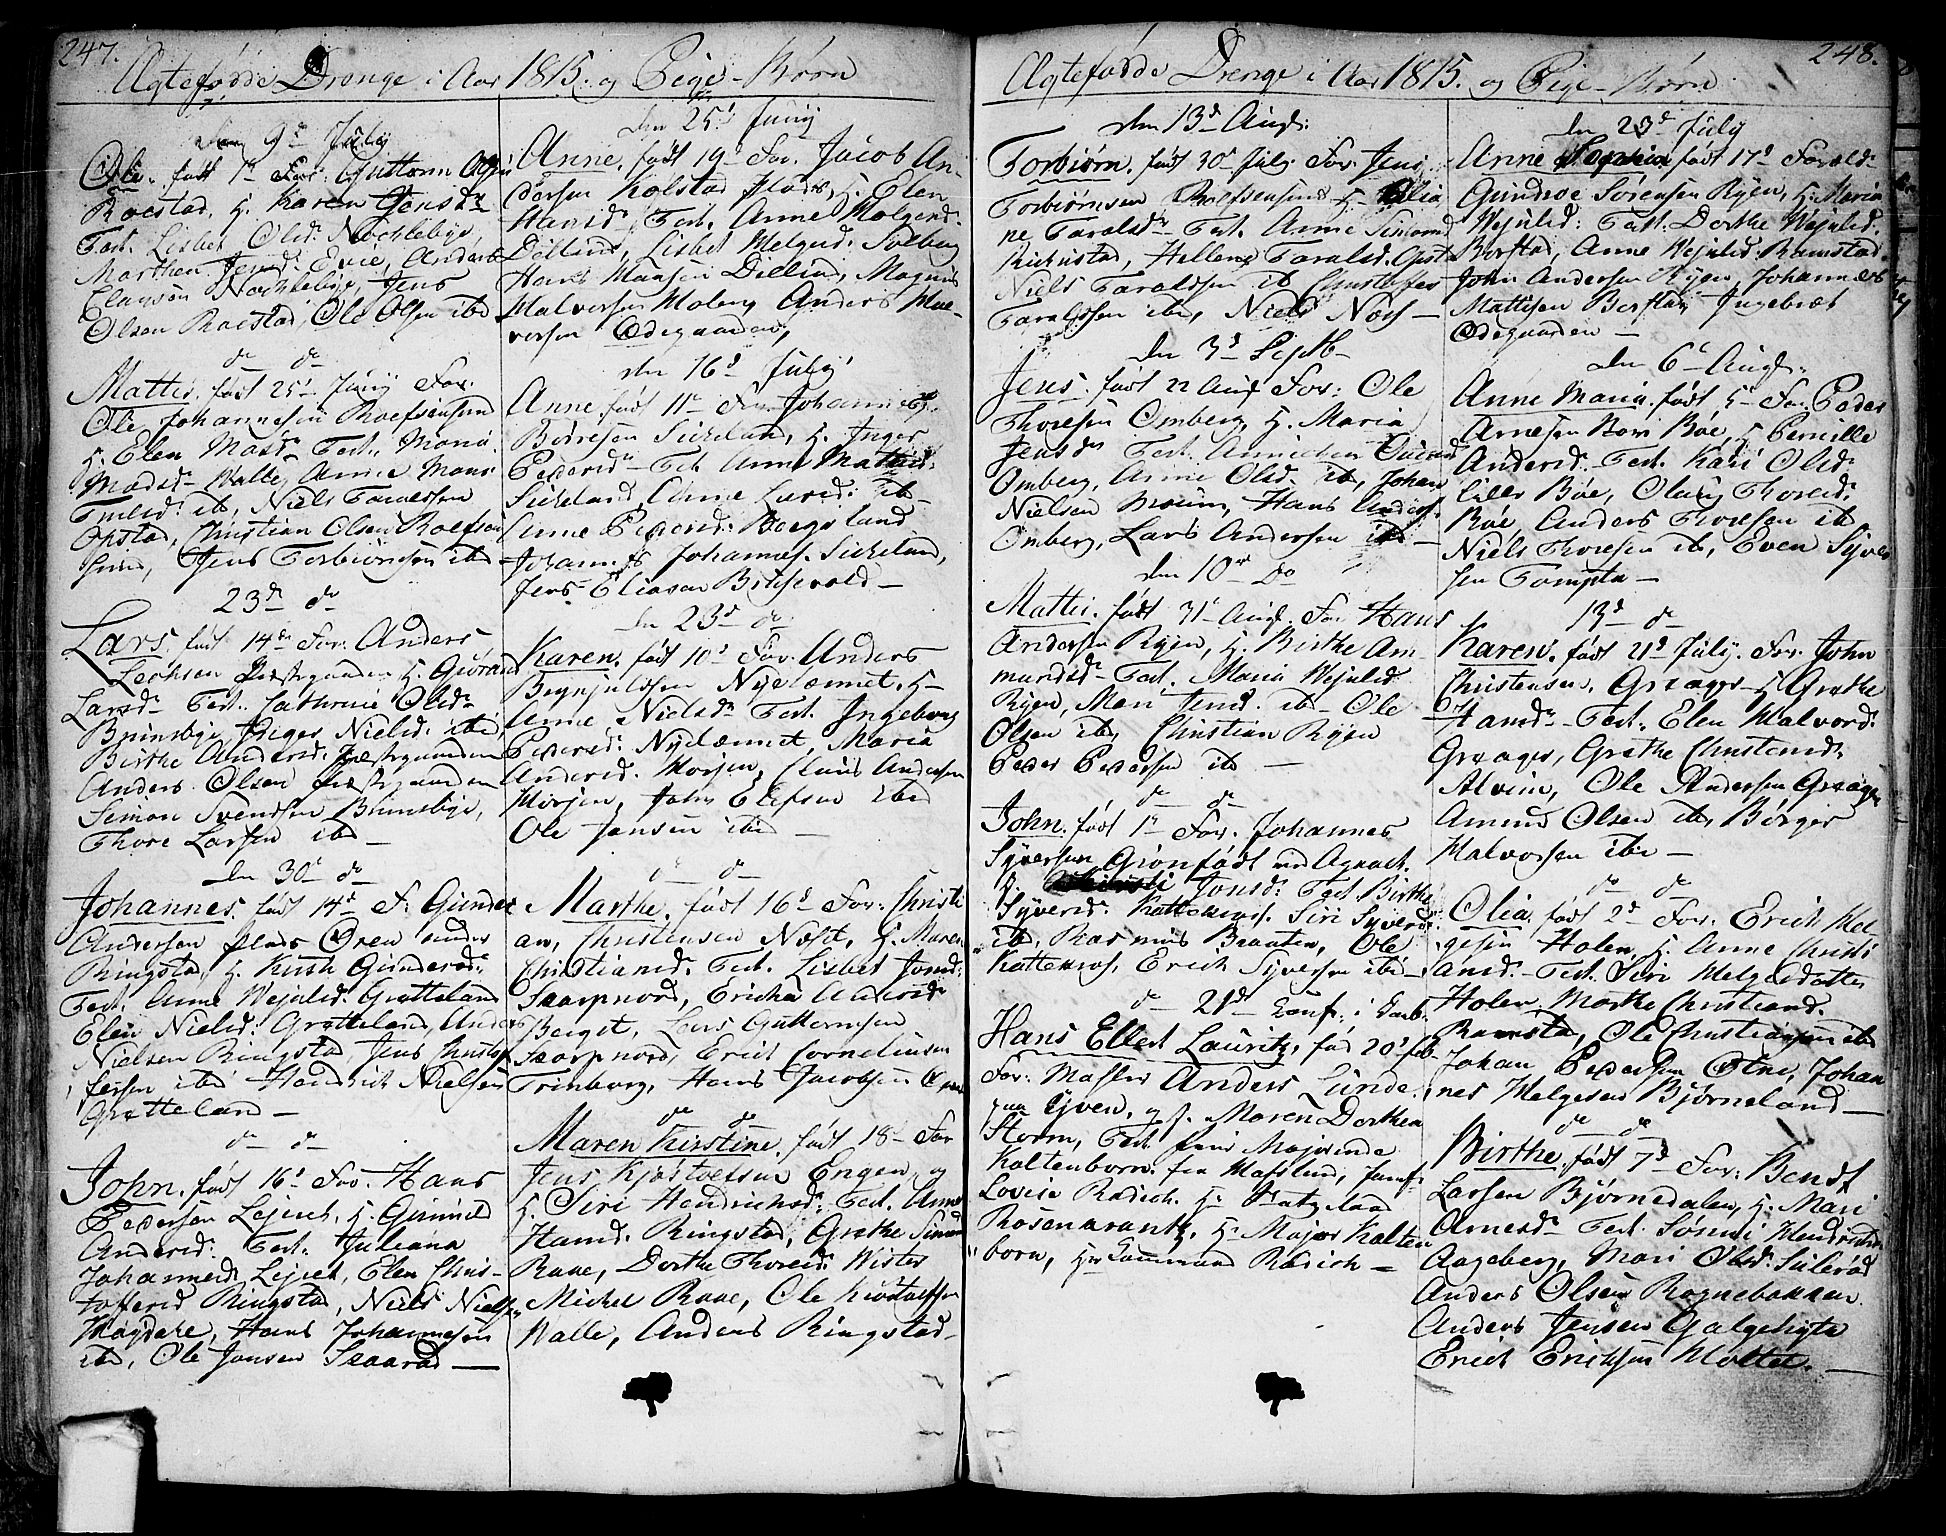 247.
Ægtefødde Drenge i Aar 1815. og Pige-Børn
den 9de July
Ole. født 1st For. Guttorm Olsen
Roestad, H. Karen Jensdr
Test. Lisbet Olsd: Nochlebye,
Marthea Jensd: Evie, Anders
Clausøn Nochlebye, Jens
Olsen Roestad, Ole Olsen ibd
do do
Matter. født 25d Juny For.
Ole Johannesen Roefsensund
H. Elen Masdr Test. Maria
Madsdr Walle, Anne Maria
ibd, Niels Taraldsen
Opstad, Christian Olsen Roefsen
sund, Jens Torbiørnsen ibd
23de do
Lars. født 14de For. Anders
Præstegaarden H. Giøran
Larsdr Test. Cathrine Olsdr
Brunsbye, Inger Nielsd: ibd,
Birthe Andersd: Præstegaarden
Anders Olsen Præstegaarden
Simon Svendsen Brunsbye,
Thore Larsen ibd
den 30d do
Johannes. født 14d F. Gunder
Andersen plads Øren under
Ringstad, H. Gundersd:
Test. Anne Wejulsd: Grotteland
Elen Nielsd: Grotteland, Anders
Nielsen Ringstad, Jens Christof
fersen ibd Hendrich Nielsen
Grotteland
do do
John. født 16d For. Hans
Pedersen Lejret, H. Gunnild
Andersd: Test. Juliana
Johannesd: Lejret, Elen Chris-
toffersd Ringstad, Niels Nielsen
Haugdahl, Hans Johannesen
ibd, Ole Jansen Skaarad
den 25d Juny
Anne. født 19d For. Jacob An-
dersen Kolstad plads, H. Elen
Hansd: Test. Anne Holgersd:
Dilland, Lisbet Helgesd: Solberg
Hans Hansen Dillind, Magnus
Halversen Moleng Anders Hal-
versen Ødegaarden,
den 16d July
Anne. født 11te For. Johannes
Børresen Sickeland, H. Inger
Pedersdr Test. Anne Mathisd:
Sickeland, Anne Larsd: ib
Anne Pedersd: Borgesland
Johannes Johannes. Sickeland,
Jens Eliasen Bithevold
den 23d do
Karen. født 10d For. Anders
Brynjulfsen Nyelænnet, H.
Anne Nielsdr Test. Ingeborg
Pedersd: Nyelænnet, Maria
Andersd. Morjen, Claus Andersen
Morjen, John Elefsen ibd
Ole Jansen ibid
do do
Marthe. født 16d For. Christi
an, Christensen Næset, H. Maren
Christiansd. Test. Lisbet Jonsd:
Skarpnord, Ericha Andersd:
Berget, Lars Guttormsen
Skarpnord, Erich Cornelissen
Trinborg, Hans Jacobsen
do do
Maren Kirstine. født 18 For
Jens Kjøstoelsen Engen, og
H. Siri Hendrichsd: Test. Anne
Hansd. Ringstad, Grethe Simens
Raae, Dorthe Thoresd: Wister
Michel Raae, Ole Kiøstoelsen
Walle, Anders Ringstad
248.
Ægtefødde Drenge i Aar 1815. og Pige-Børn
den 13d Aug:
Torbiørn. født 30d July For. Jens
Torbiørnsen Roefsensund H. Olia
ne Taralsdr Test. Anne Simonsd
Kichustad, Hellene Taralsd. Opst
Niels Taraldsen ib Christofer
Taraldsen ibd, Niels Noes
den 3d Septb
Jens. født 22 Aug For: Ole
Thoresen Omberg, H. Maria
Jensdr Test. Annichen
Omberg, Anne Olsd. ib, Johan
Nielsen Moum, Hans Anders.
Omberg, Lars Andersen ibd
den 10de Do
Matter. født 31d Aug. For Hans
Andersen Ryen, H. Birthe Am-
mundsdr Test. Maria Wejulsd.
Ryen, Mari Jensd. ib Ole
Olsen ibd, Christian Ryen
Peder Pedersen ibd
do do
John. født 1st For. Johannes
Syversen Grønfødt ved Agnack.
H. Jonsd: Test. Birthe
Syversd: Kattekros. Siri Syversd:
ibd, Rasmus Braaten, Ole
Kattekros, Erich Syversen ibd
do 21de Conf. i
Hans Ellert Lauritz. fød 20d Feb
For: Anders Lunde
paa Even, og f. Maren Dorthea
Storm, Test. frue Majorinde
Kaltenborn. fra Mosslund, Jomf:
Lovise Radich. Hr
Rosenkrantz, Hr Major Kalten
born, Hr Radich
den 23d July
Anne Sophia født 17d For.
Gundroe Sørensen Ryen, H. Maria
Wejulsd: Test. Dorthe Wejulsd:
Borstad, Anne Wejulsd: Ramstad
John Andersen Ryen Johannes
Mattisen Borstad, Ingebret
Ødegaarden
den 6d Aug:
Anne Maria. født 4 For. Peder
Arnesen Boe, H. Pernille
Andersd. Test. Kari Olsd:
Lille Bøe, Oleug Thoresd:
Bøe, Anders Thoresen ib
Niels Thoresen ib, Even Syver
sen Tomptæ
13d do
Karen. født 21d July. For. John
Christensen. Greager H. Grethe
Hansdr Test. Elen Halvord:
Greager, Grethe Christensd:
Alvim, Ole Andersen Greager
Amund Olsen ib, Børger
Halvorsen ibd
do do
Olia. født 2d For. Erich Hel-
gesen Holen, H. Anne Christi
ansd. Test. Siri Helgesdatter
Holen Marthe Christiansd.
Ramstad, Ole Christiansen ibd
Johan Pedersen Østni, Johan
nes Helgesen Bjørneland
do do
Birthe. født 7d For: Bendt
Larsen Bjørnedalen, H. Mari
Arnesdr Test. Sønni Hendrichsd
Aageberg, Mari Olsd: Sulerød
Anders Olsen Rognebakken
Anders Jensen Galgehytte
Erich Erichsen Moltet.